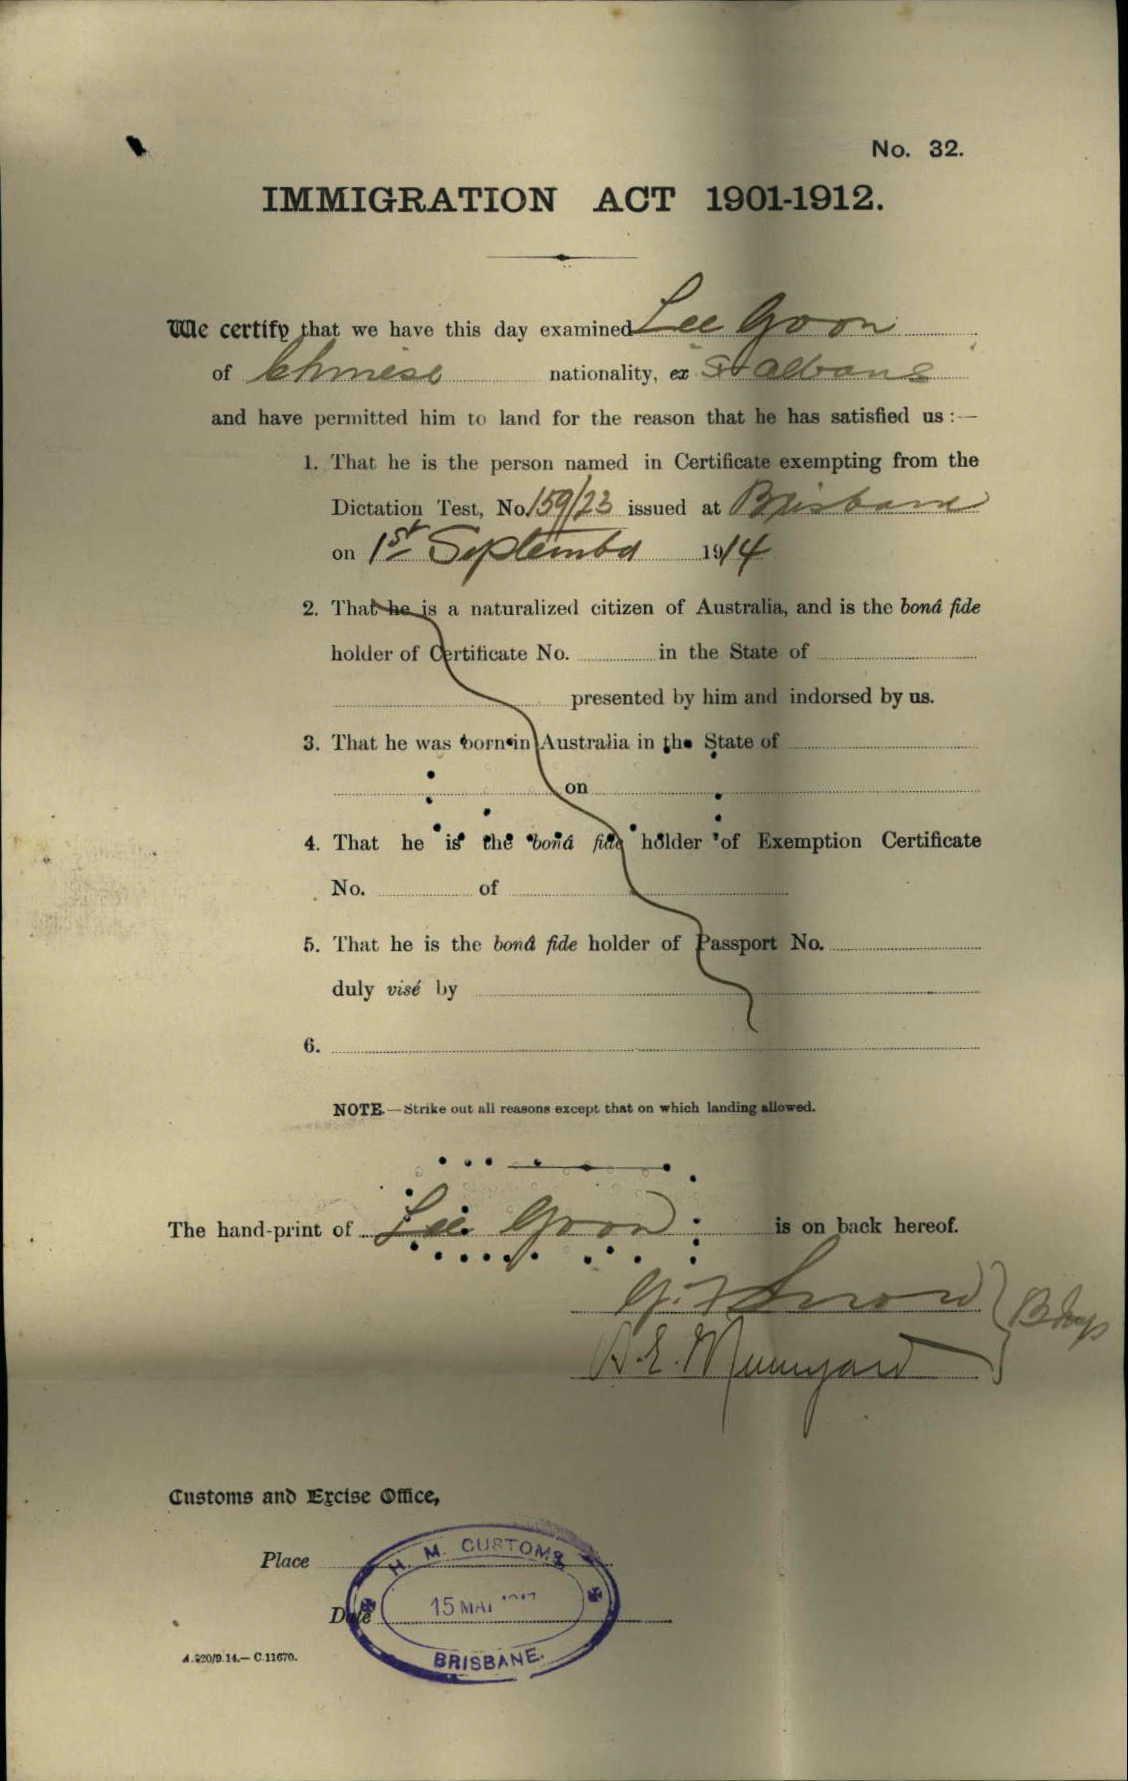 No. 32.
IMMIGRATION ACT 1901-1912.
We certify that we have this day examined Lee Goon
of Chinese nationality, ex "St Albans"
and have permitted him to land for the reason that he has satisfied us :—
1. That he is the person named in Certificate exempting from the
Dictation Test, No. 159/23 issued at Brisbane
on 1st September 1914
2. That he is a naturalized citizen of Australia, and is the bonâ fide
holder of Certificate No. in the State of
presented by him and indorsed by us.
3. That he was born in Australia in the State of
on
4. That he is the bonâ fide holder of Exemption Certificate
No. of
5. That he is the bonâ fide holder of Passport No.
duly visé by
6.
NOTE.—Strike out all reasons except that on which landing allowed.
The hand-print of Lee Goon is on back hereof.
Customs and Excise Office,
Place
Date
H. M. CUSTOMS
15
BRISBANE.
A.220/9.14.—C.11670.